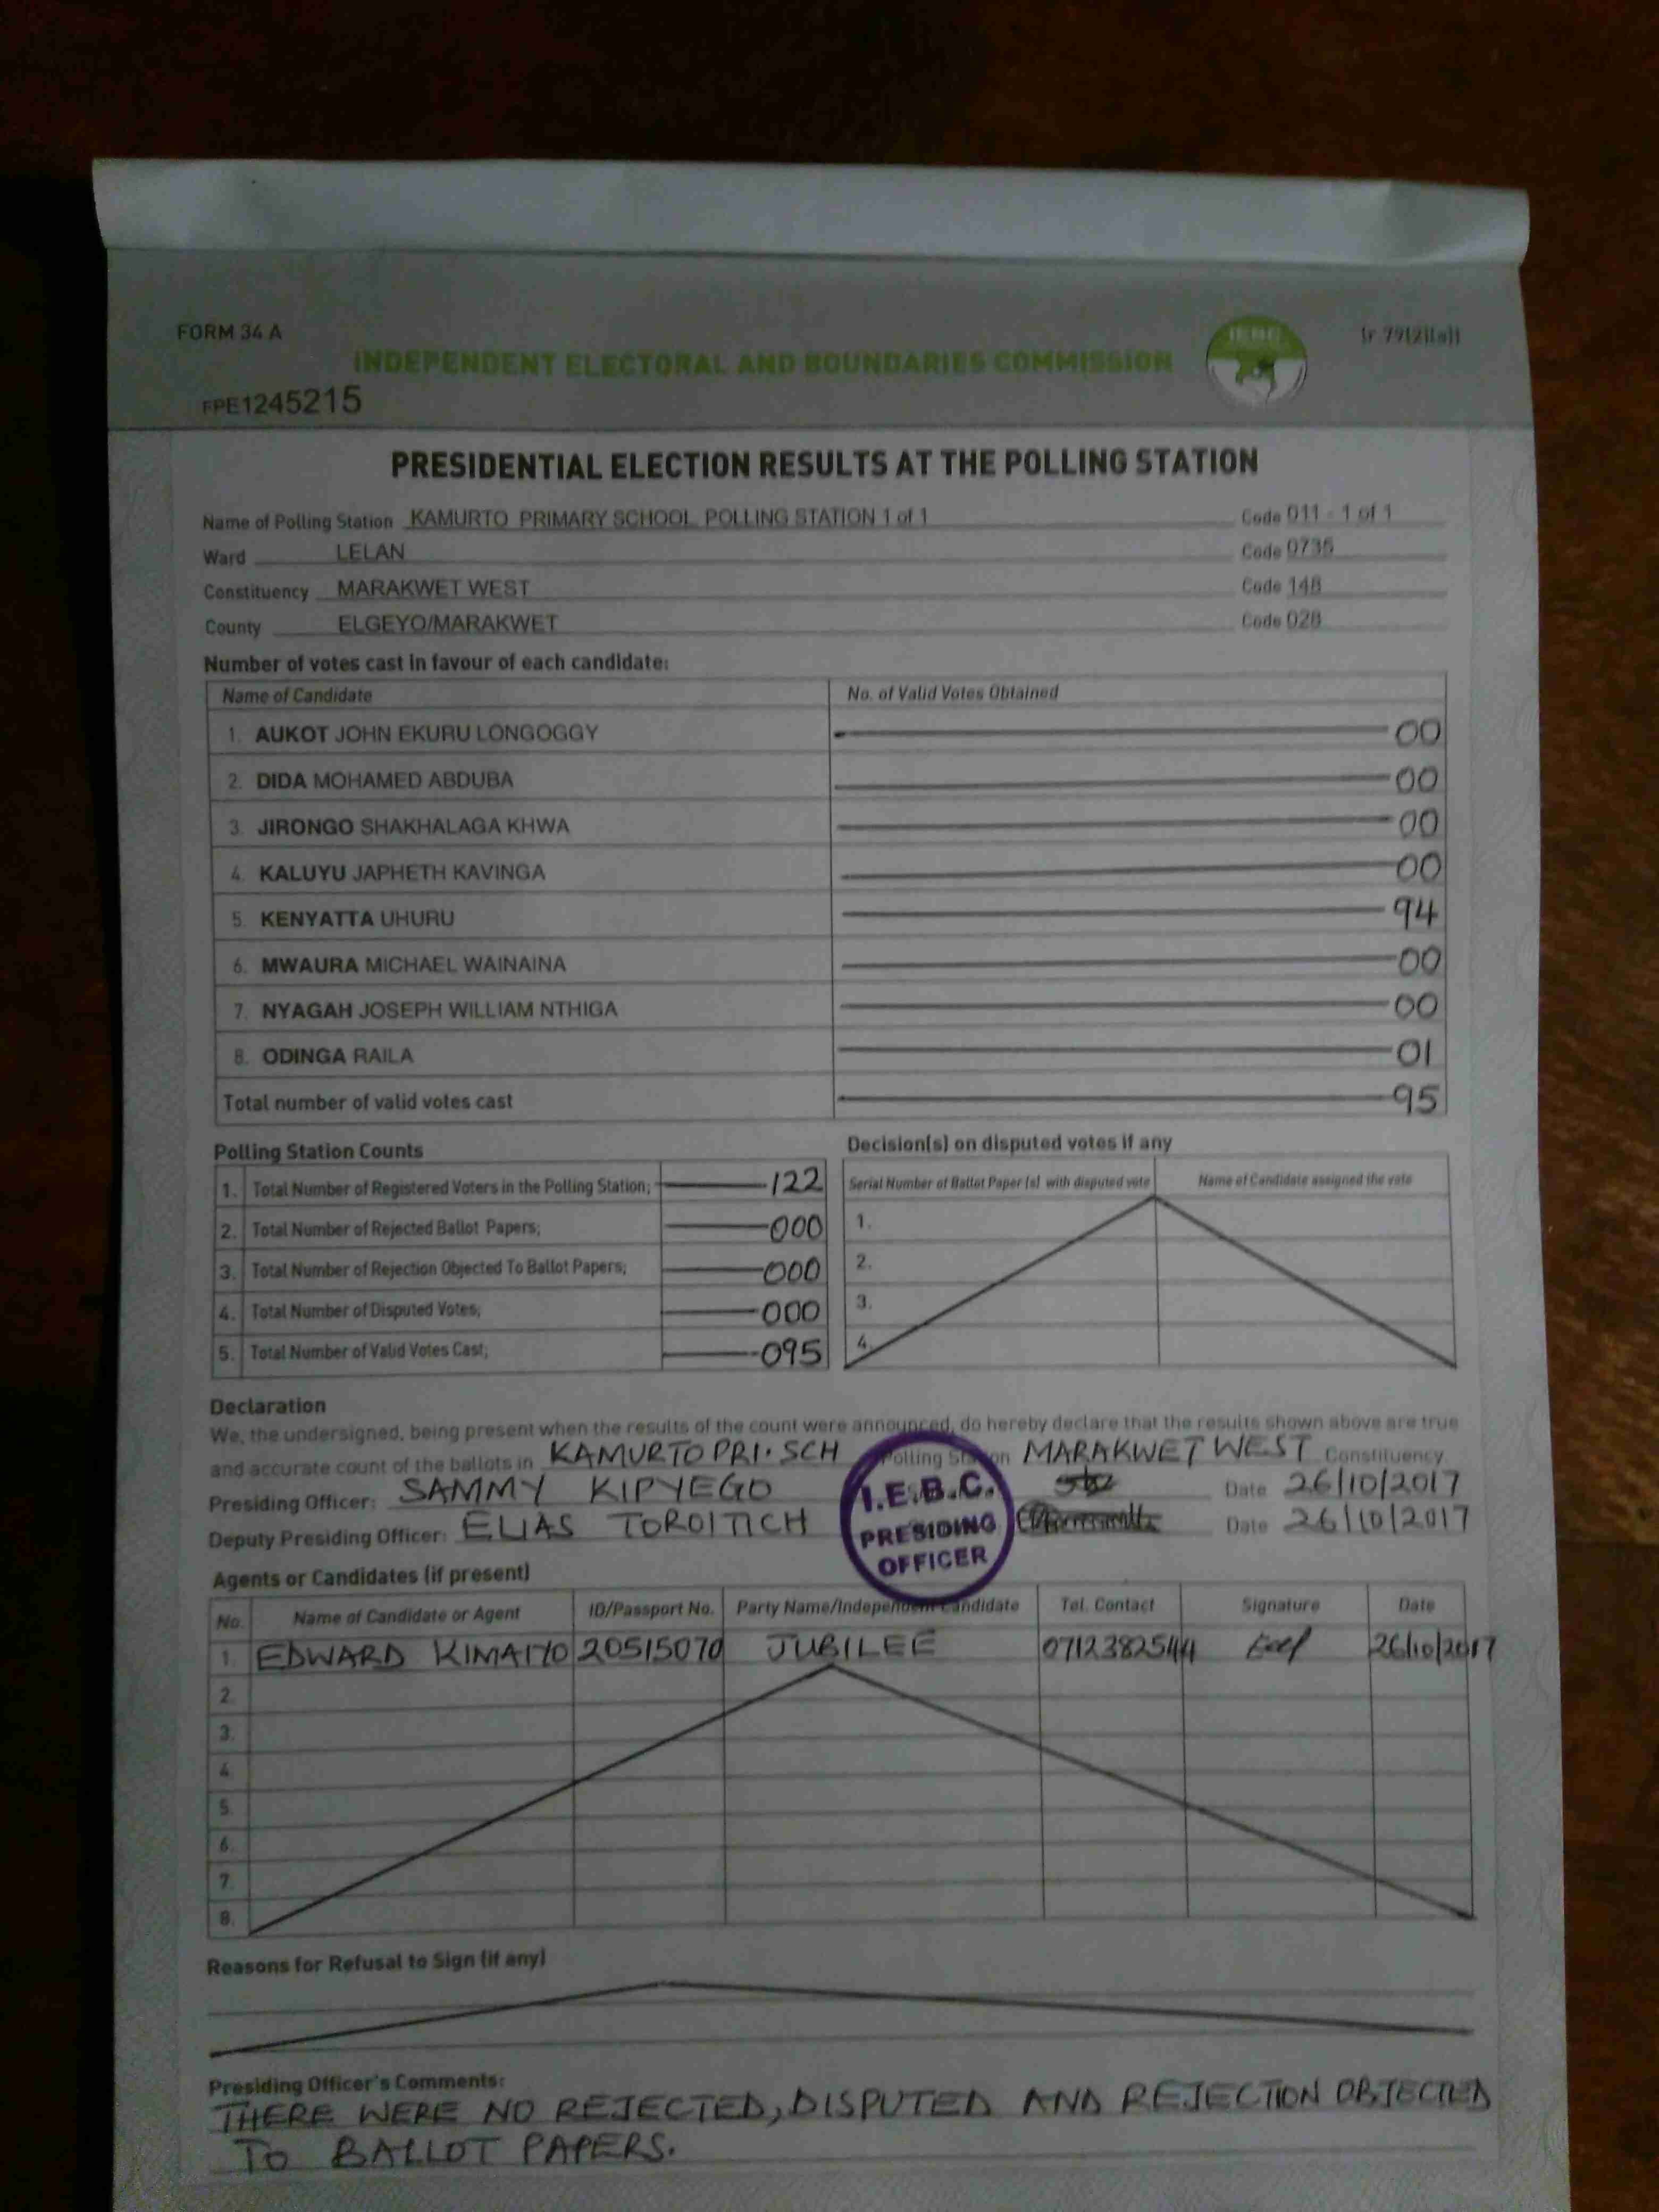 FORM 34 A
(r 79(2)(a))
IEBC
INDEPENDENT ELECTORAL AND BOUNDARIES COMMISSION
FPE1245215
PRESIDENTIAL ELECTION RESULTS AT THE POLLING STATION
Name of Polling Station KAMURTO PRIMARY SCHOOL POLLING STATION 1 of 1 Code 011 - 1 of 1
Ward LELAN Code 0735
Constituency MARAKWET WEST Code 148
County ELGEYO/MARAKWET Code 028
Number of votes cast in favour of each candidate:
Name of Candidate No. of Valid Votes Obtained
1. AUKOT JOHN EKURU LONGOGGY 00
2. DIDA MOHAMED ABDUBA 00
3. JIRONGO SHAKHALAGA KHWA 00
4. KALUYU JAPHETH KAVINGA 00
5. KENYATTA UHURU 94
6. MWAURA MICHAEL WAINAINA 00
7. NYAGAH JOSEPH WILLIAM NTHIGA 00
8. ODINGA RAILA 01
Total number of valid votes cast 95
Polling Station Counts
1. Total Number of Registered Voters in the Polling Station; 122
2. Total Number of Rejected Ballot Papers; 000
3. Total Number of Rejection Objected To Ballot Papers; 000
4. Total Number of Disputed Votes; 000
5. Total Number of Valid Votes Cast; 095
Decision(s) on disputed votes if any
Serial Number of Ballot Paper (s) with disputed vote Name of Candidate assigned the vote
1.
2.
3.
4.
Declaration
We, the undersigned, being present when the results of the count were announced, do hereby declare that the results shown above are true
and accurate count of the ballots in KAMURTO PRI. SCH Polling Station MARAKWET WEST Constituency
Presiding Officer: SAMMY KIPYEGO Date 26/10/2017
Deputy Presiding Officer: ELIAS TOROITICH Date 26/10/2017
I.E.B.C.
PRESIDING
OFFICER
Agents or Candidates (if present)
No. Name of Candidate or Agent ID/Passport No. Party Name/Independent Candidate Tel. Contact Signature Date
1. EDWARD KIMAIYO 20515070 JUBILEE 0712382544 26/10/2017
2.
3.
4.
5.
6.
7.
8.
Reasons for Refusal to Sign (if any)
Presiding Officer's Comments:
THERE WERE NO REJECTED, DISPUTED AND REJECTION OBJECTED
TO BALLOT PAPERS.